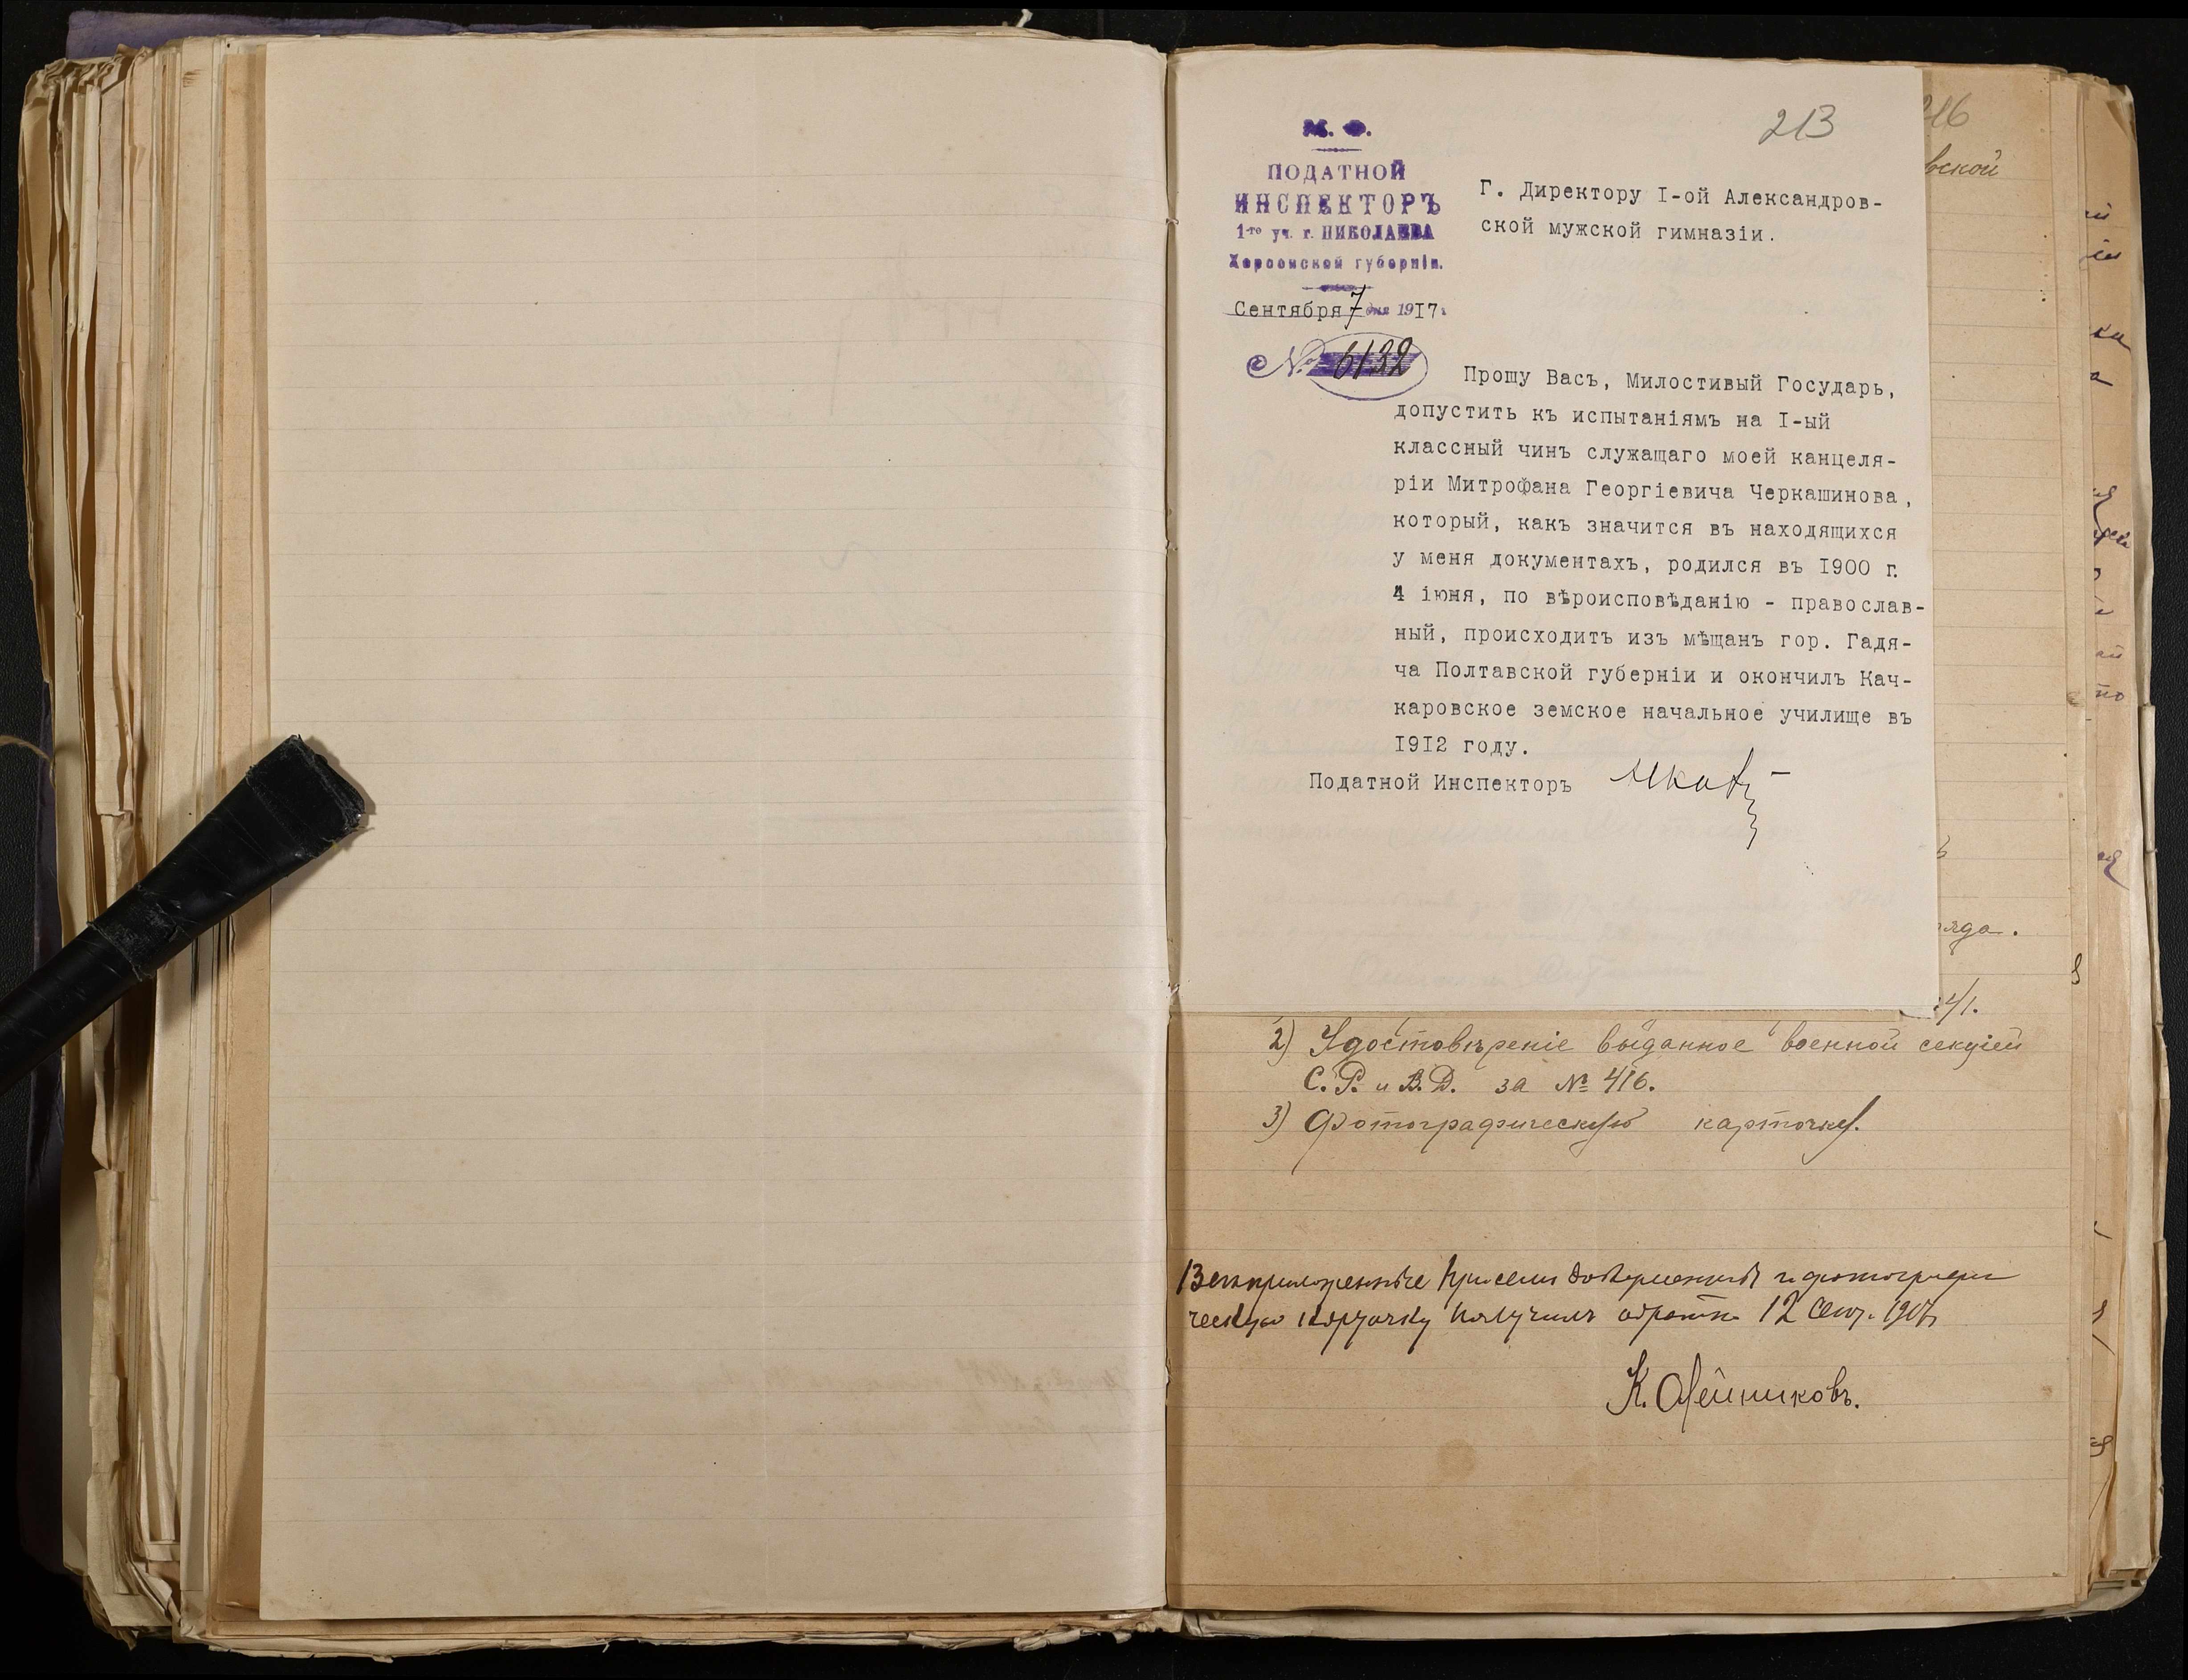 213
М. Ф.
ПОДАТНОЙ
ИНСПЕКТОРЪ
1-го уч. г. НИКОЛАЕВА
Херсонской губерніи.
Сентября 7 дня 1917 г.
№ 6132
Г. Директору I-ой Александров-
ской мужской гимназіи.
Прошу Васъ, Милостивый Государь,
допустить къ испытаніямъ на I-ый
классный чинъ служащаго моей канцеля-
ріи Митрофана Георгіевича Черкашинова,
который, какъ значится въ находящихся
у меня документахъ, родился въ 1900 г.
4 іюня, по вѣроисповѣданію - православ-
ный, происходитъ изъ мѣщанъ гор. Гадя-
ча Полтавской губерніи и окончилъ Кач-
каровское земское начальное училище въ
1912 году.
Податной Инспекторъ
216
вской
ряда.
41.
2) Удостовѣреніе выданное военной секціей
С. Р. и В. Д. за № 416.
3) Фотографическую карточку.
Всѣ приложенные при семъ документы и фотографи
ческую карточку получилъ обратно 12 сент. 1917
К. Олейниковъ.